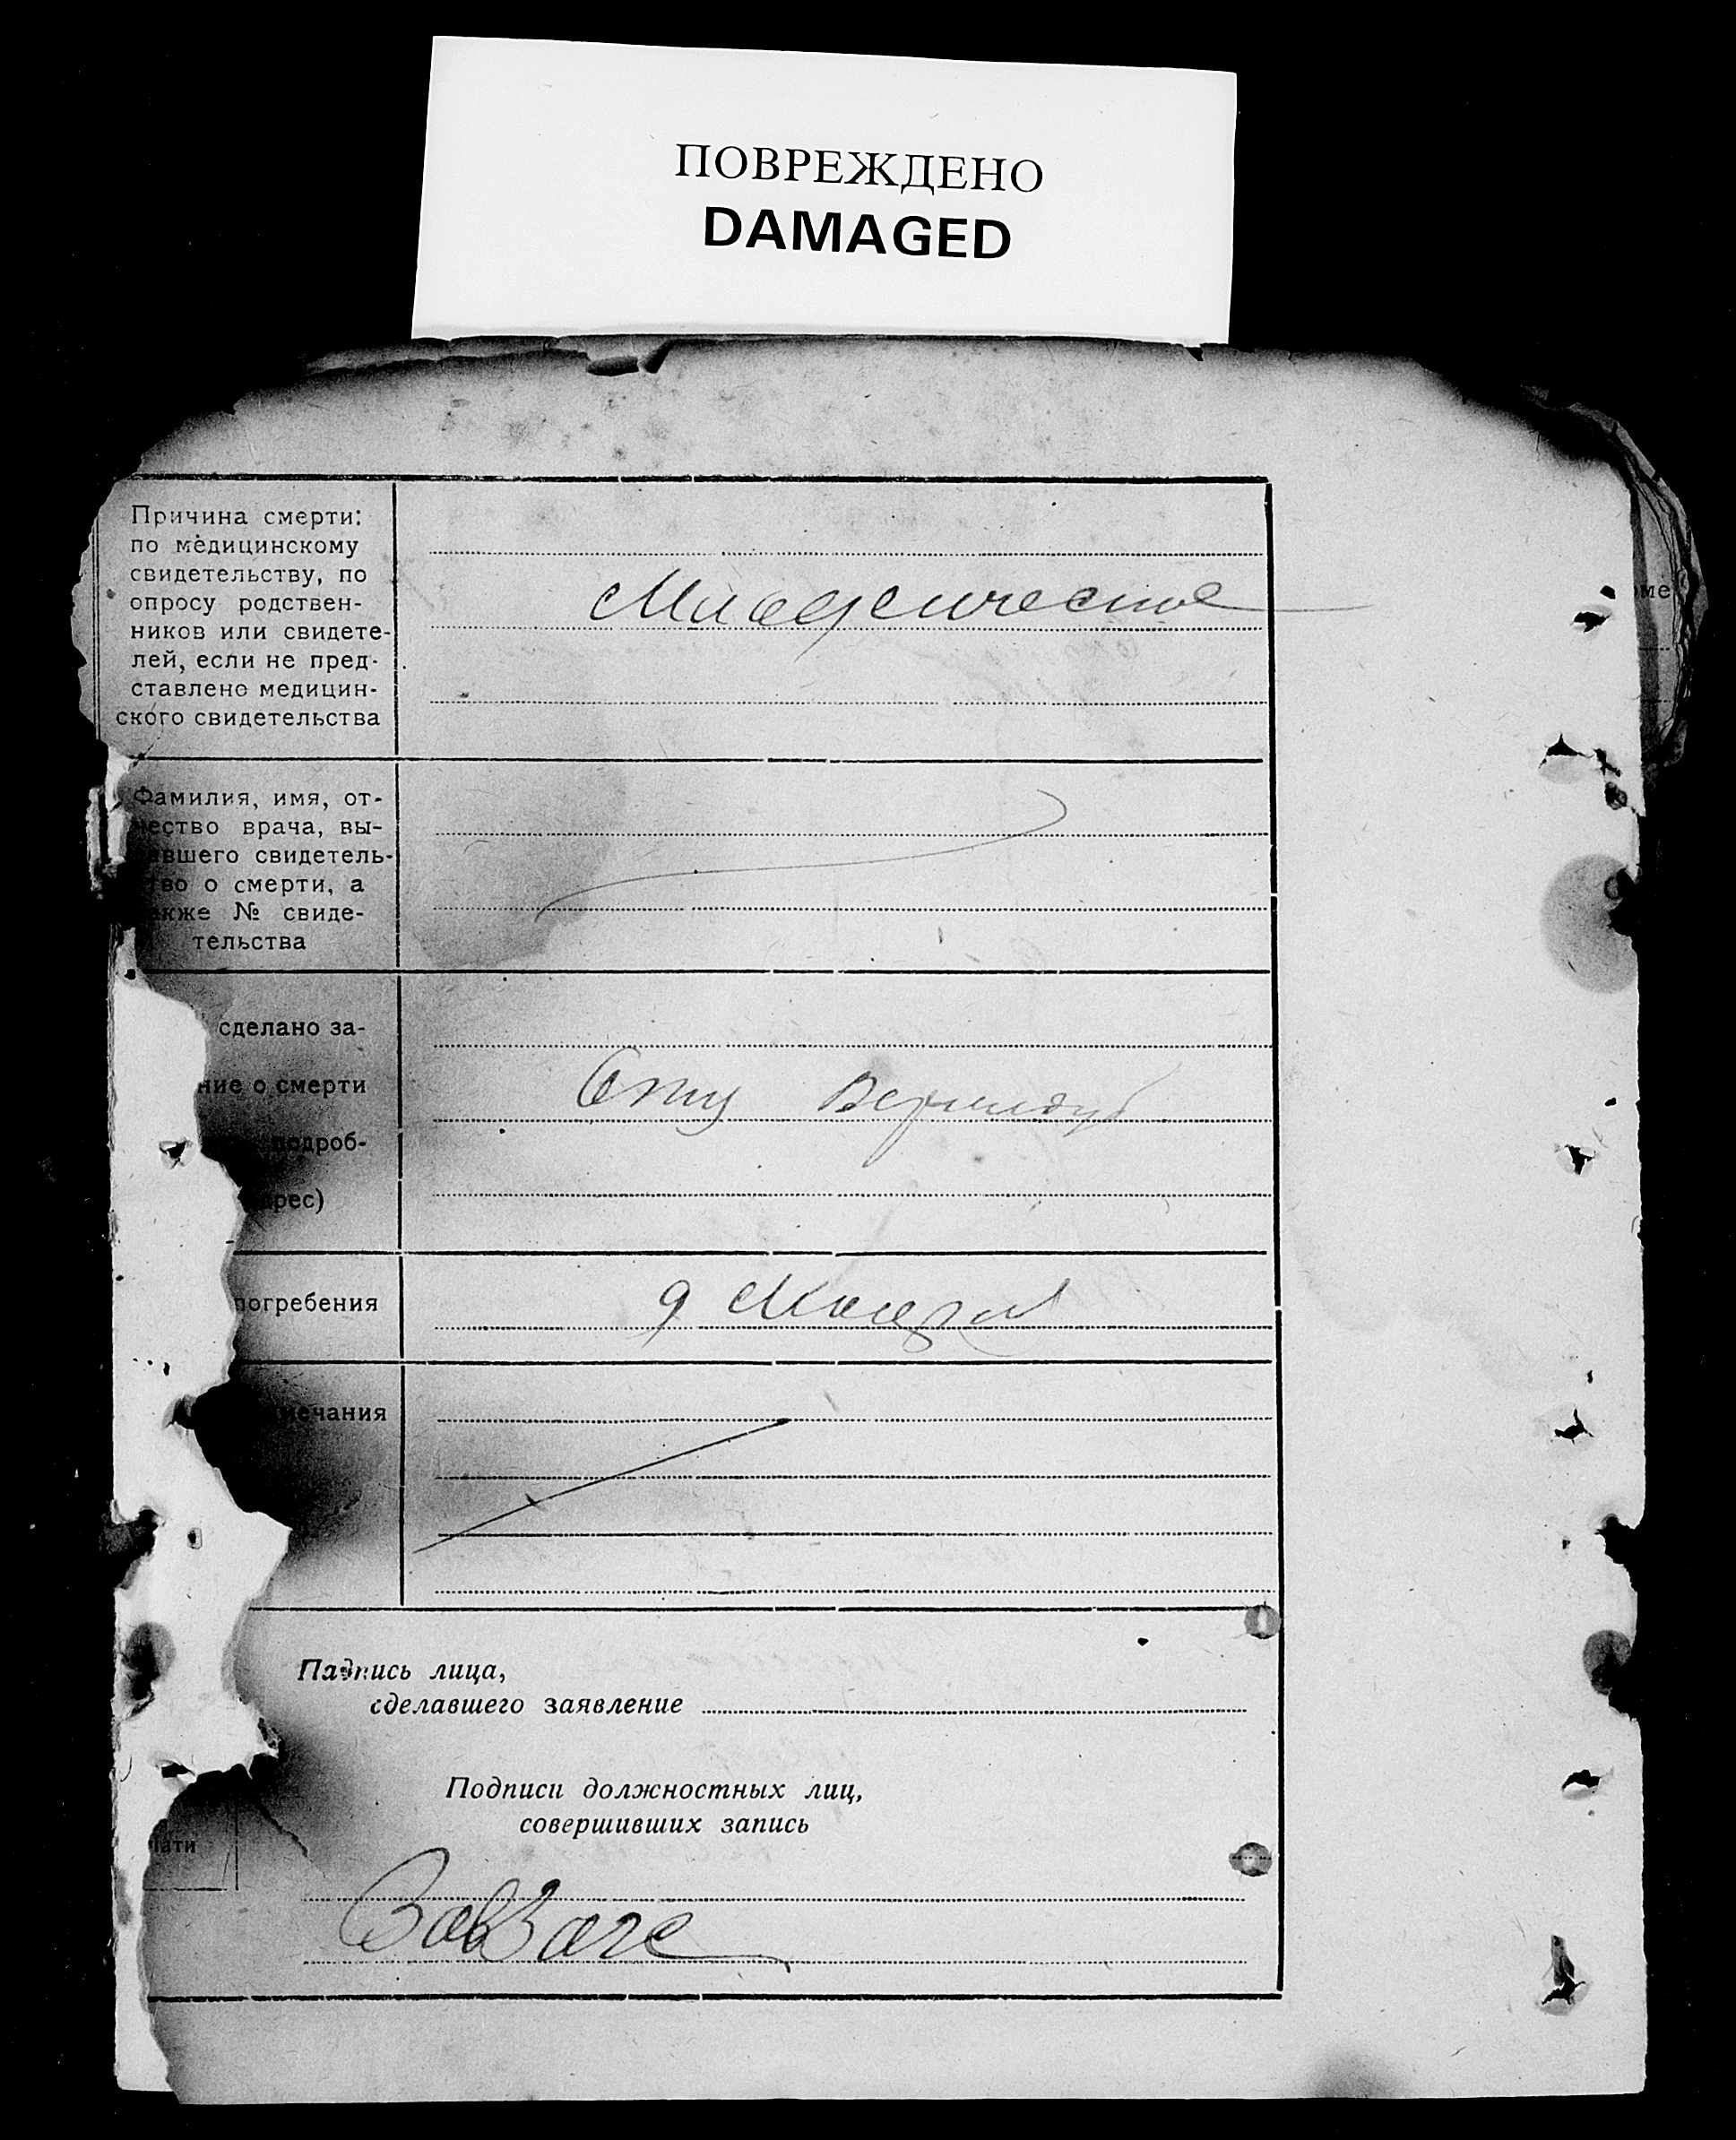 ПОВРЕЖДЕНО
DAMAGED
Причина смерти:
по медицинскому
свидетельству, по
опросу родствен-
ников или свидете-
лей, если не пред-
ставлено медицин-
ского свидетельства
Младенческое
оме
Фамилия, имя, от-
чество врача, вы-
авшего свидетель-
тво о смерти, а
акже № свиде-
тельства
сделано за-
ние о смерти
подроб-
дрес)
погребения
д
мечания
Подпись лица,
сделавшего заявление
Подписи должностных лиц,
совершивших запись
чати